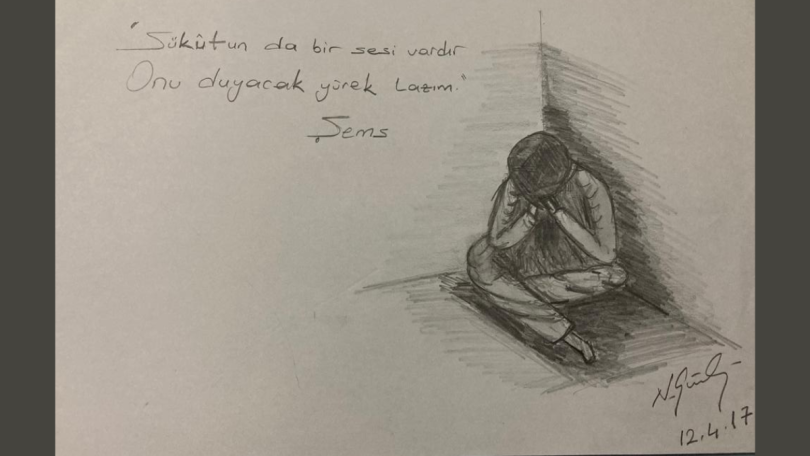 "Sükûtun da bir sesi vardır
Onu duyacak yürek Lazım."
Şems
12.4.17